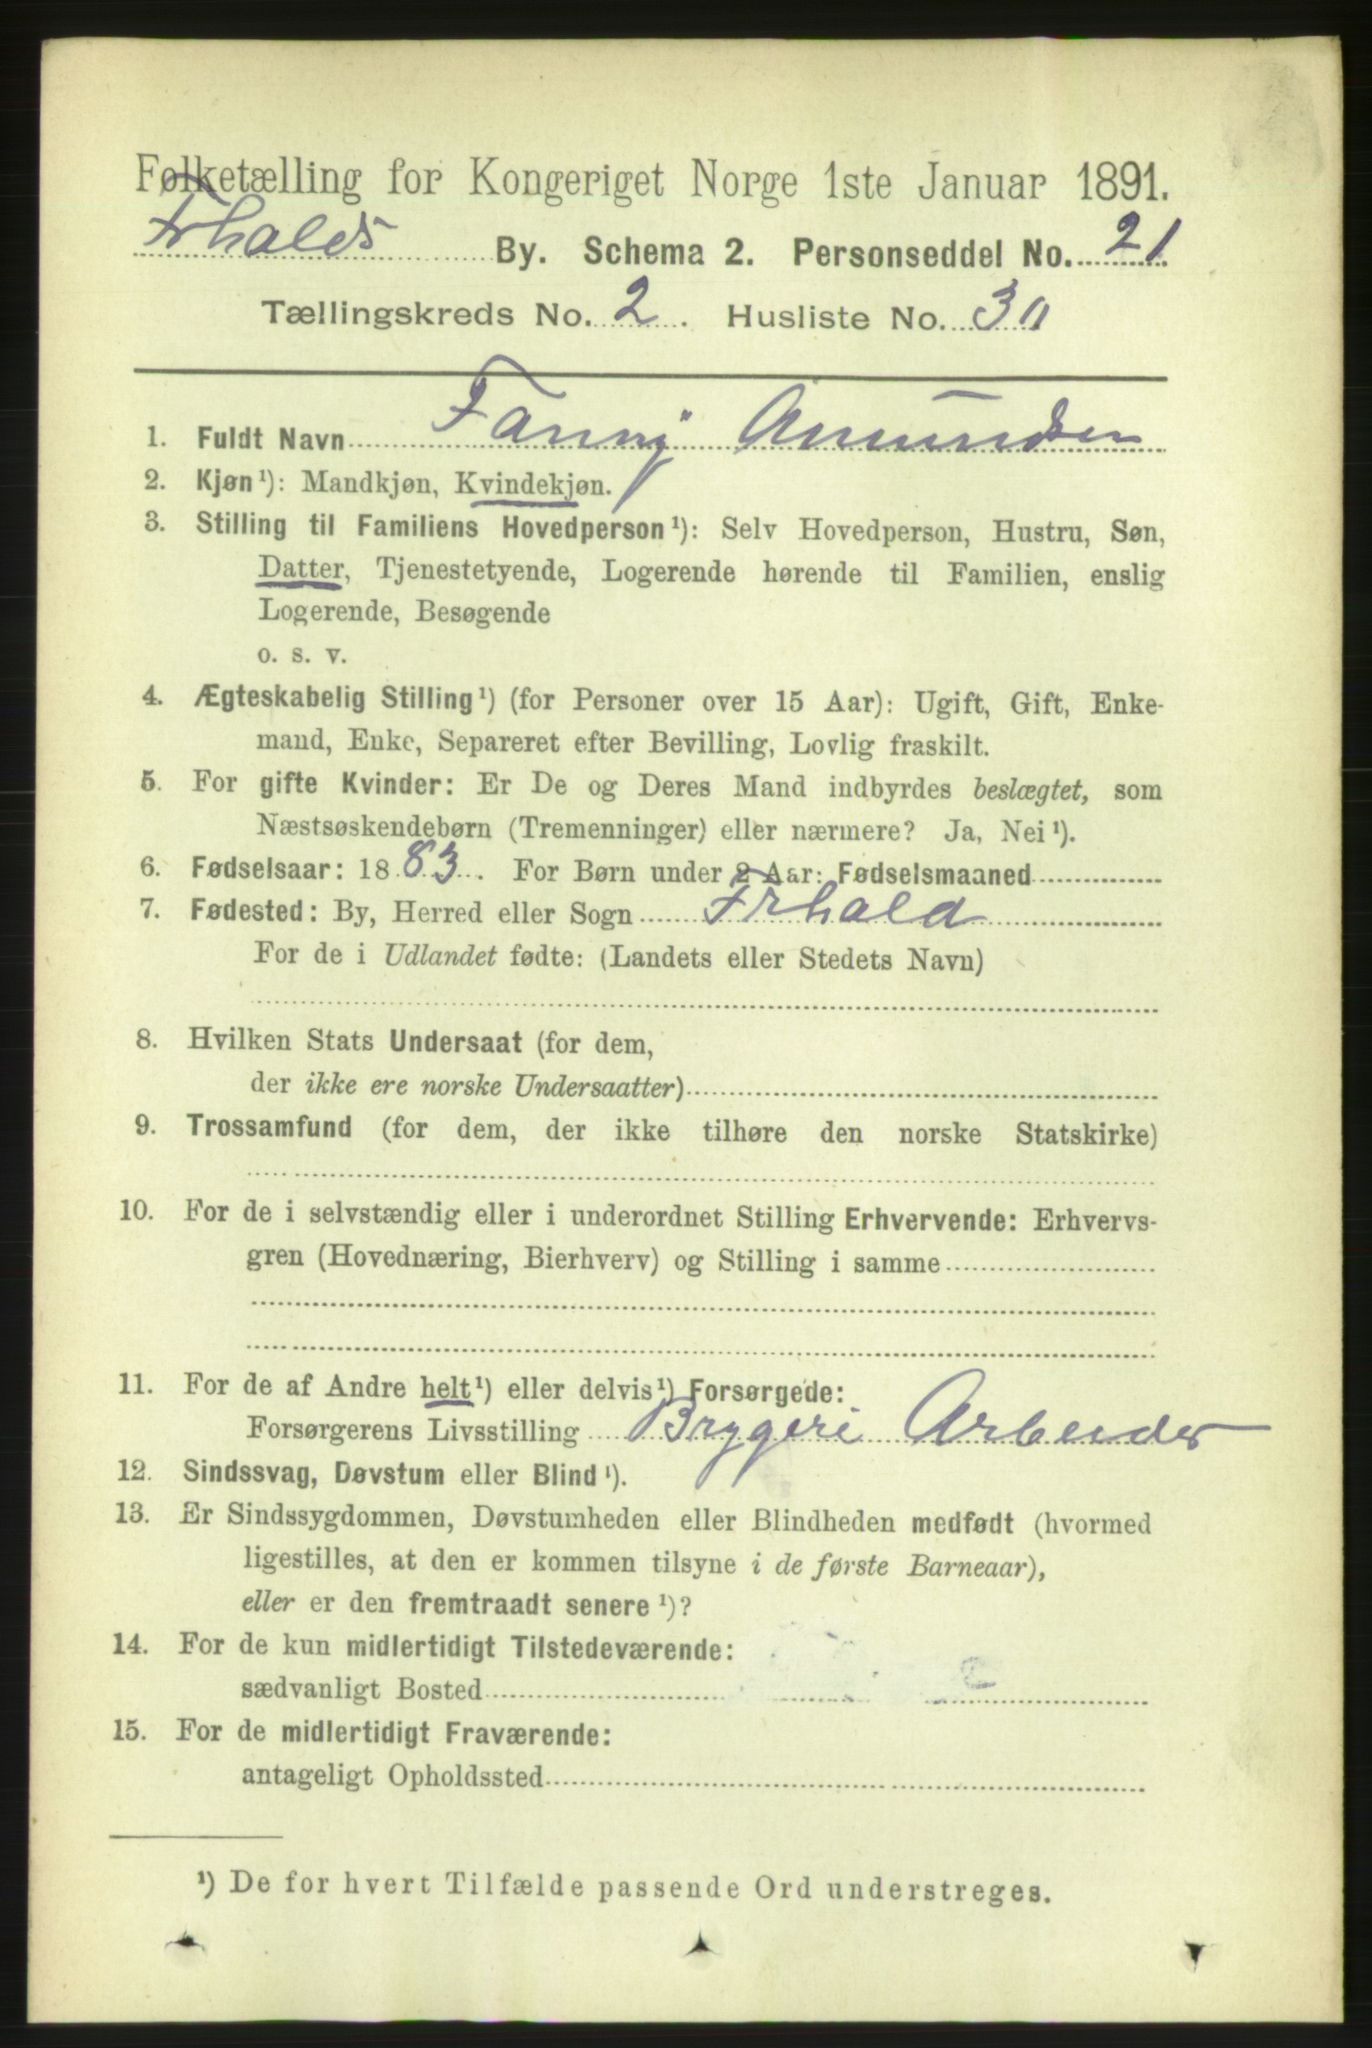 Folketælling for Kongeriget Norge 1ste Januar 1891.
Frhalds By. Schema 2. Personseddel No. 21
Tællingskreds No. 2. Husliste No. 30
1. Fuldt Navn Fanny Amundsen
2. Kjøn ¹): Mandkjøn, Kvindekjøn.
3. Stilling til Familiens Hovedperson ¹): Selv Hovedperson, Hustru, Søn,
Datter, Tjenestetyende, Logerende hørende til Familien, enslig
Logerende, Besøgende
o. s. v.
4. Ægteskabelig Stilling ¹) (for Personer over 15 Aar): Ugift, Gift, Enke-
mand, Enke, Separeret efter Bevilling, Lovlig fraskilt.
5. For gifte Kvinder: Er De og Deres Mand indbyrdes beslægtet, som
Næstsøskendebørn (Tremenninger) eller nærmere? Ja, Nei ¹).
6. Fødselsaar: 1883. For Børn under 2 Aar: Fødselsmaaned
7. Fødested: By, Herred eller Sogn Frhald
For de i Udlandet fødte: (Landets eller Stedets Navn)
8. Hvilken Stats Undersaat (for dem,
der ikke ere norske Undersaatter)
9. Trossamfund (for dem, der ikke tilhøre den norske Statskirke)
10. For de i selvstændig eller i underordnet Stilling Erhvervende: Erhvervs-
gren (Hovednæring, Bierhverv) og Stilling i samme
11. For de af Andre helt ¹) eller delvis ¹) Forsørgede:
Forsørgerens Livsstilling Brygeri Arbeider
12. Sindssvag, Døvstum eller Blind ¹).
13. Er Sindssygdommen, Døvstumheden eller Blindheden medfødt (hvormed
ligestilles, at den er kommen tilsyne i de første Barneaar),
eller er den fremtraadt senere ¹)?
14. For de kun midlertidigt Tilstedeværende:
sædvanligt Bosted
15. For de midlertidigt Fraværende:
antageligt Opholdssted
¹) De for hvert Tilfælde passende Ord understreges.